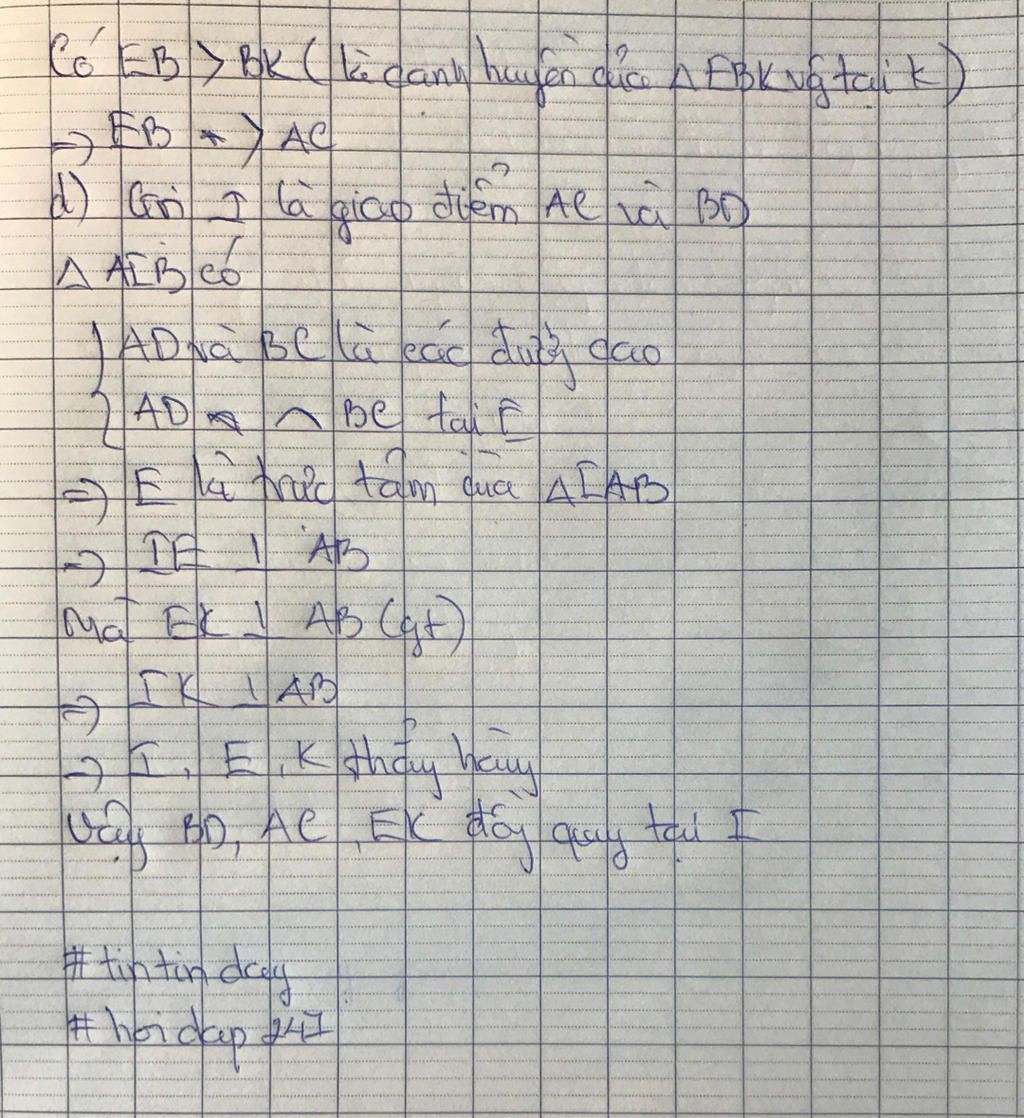 Có EB > BK (là cạnh huyền của △EBK vg tại K)
=> EB > AC
d) Gọi I là giao điểm AC và BD
△ AIB có
AD và BC là các đường cao
AD ∩ BC tại E
=> E là trực tâm của △IAB
=> IE ⊥ AB
Mà EK ⊥ AB (gt)
=> IK ⊥ AB
=> I, E, K thẳng hàng
Vậy BD, AC, EK đồng quy tại I
#tintinday
#hoidap247